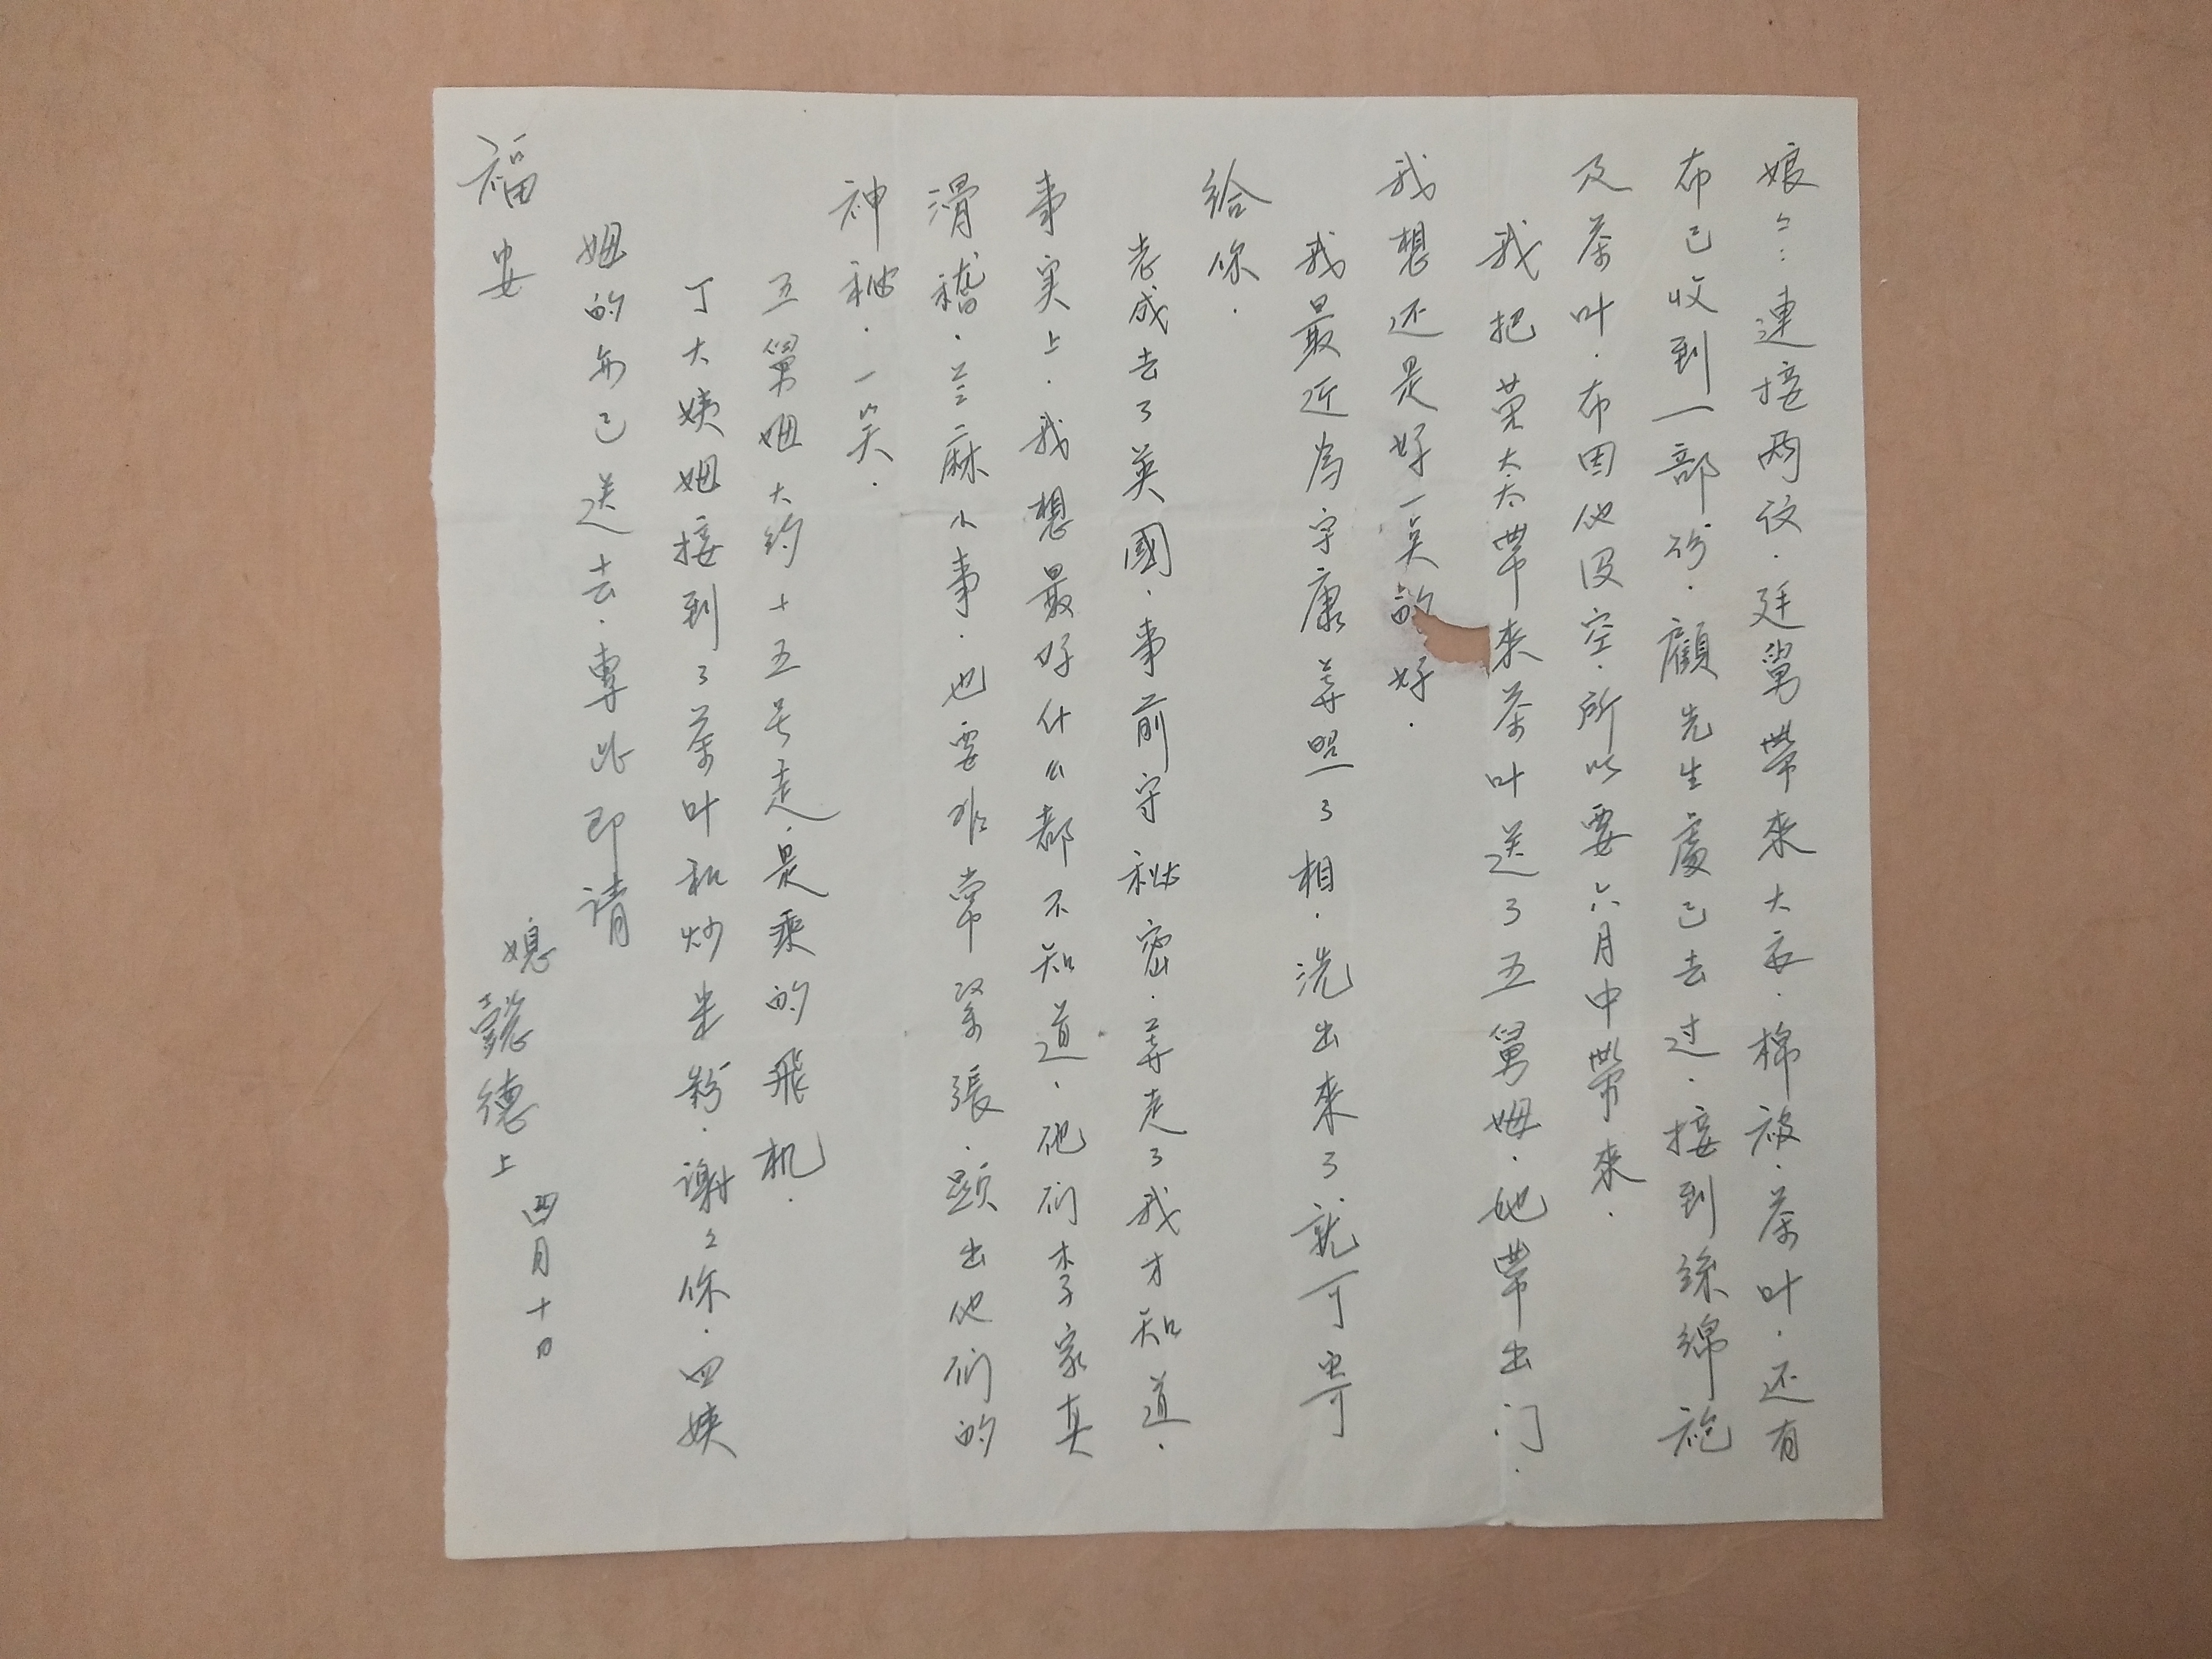 娘々：連接两信．廷舅帶來大衣．棉被．茶叶．还有
布已收到一部份．顧先生處已去过．接到絲綿袍
及茶叶．布因他没空．所以要六月中帶來．
我把荣太太帶來茶叶送了五舅姆．她帶出门．
我想还是好一点的好．
我最近为宇康等照了相．洗出來了就可寄
给你．
老成去了英國．事前守秘密．等走了我才知道．
事实上．我想最好什么都不知道．他们李家真
滑稽．芝麻小事．也要非常緊張．顕出他们的
神秘．一笑．
五舅姆大约十五号走．是乘的飛机．
丁大姨姆接到了茶叶和炒米粉．谢々你．四姨
姆的亦已送去．專此即请
福安
媳懿德上
四月十日